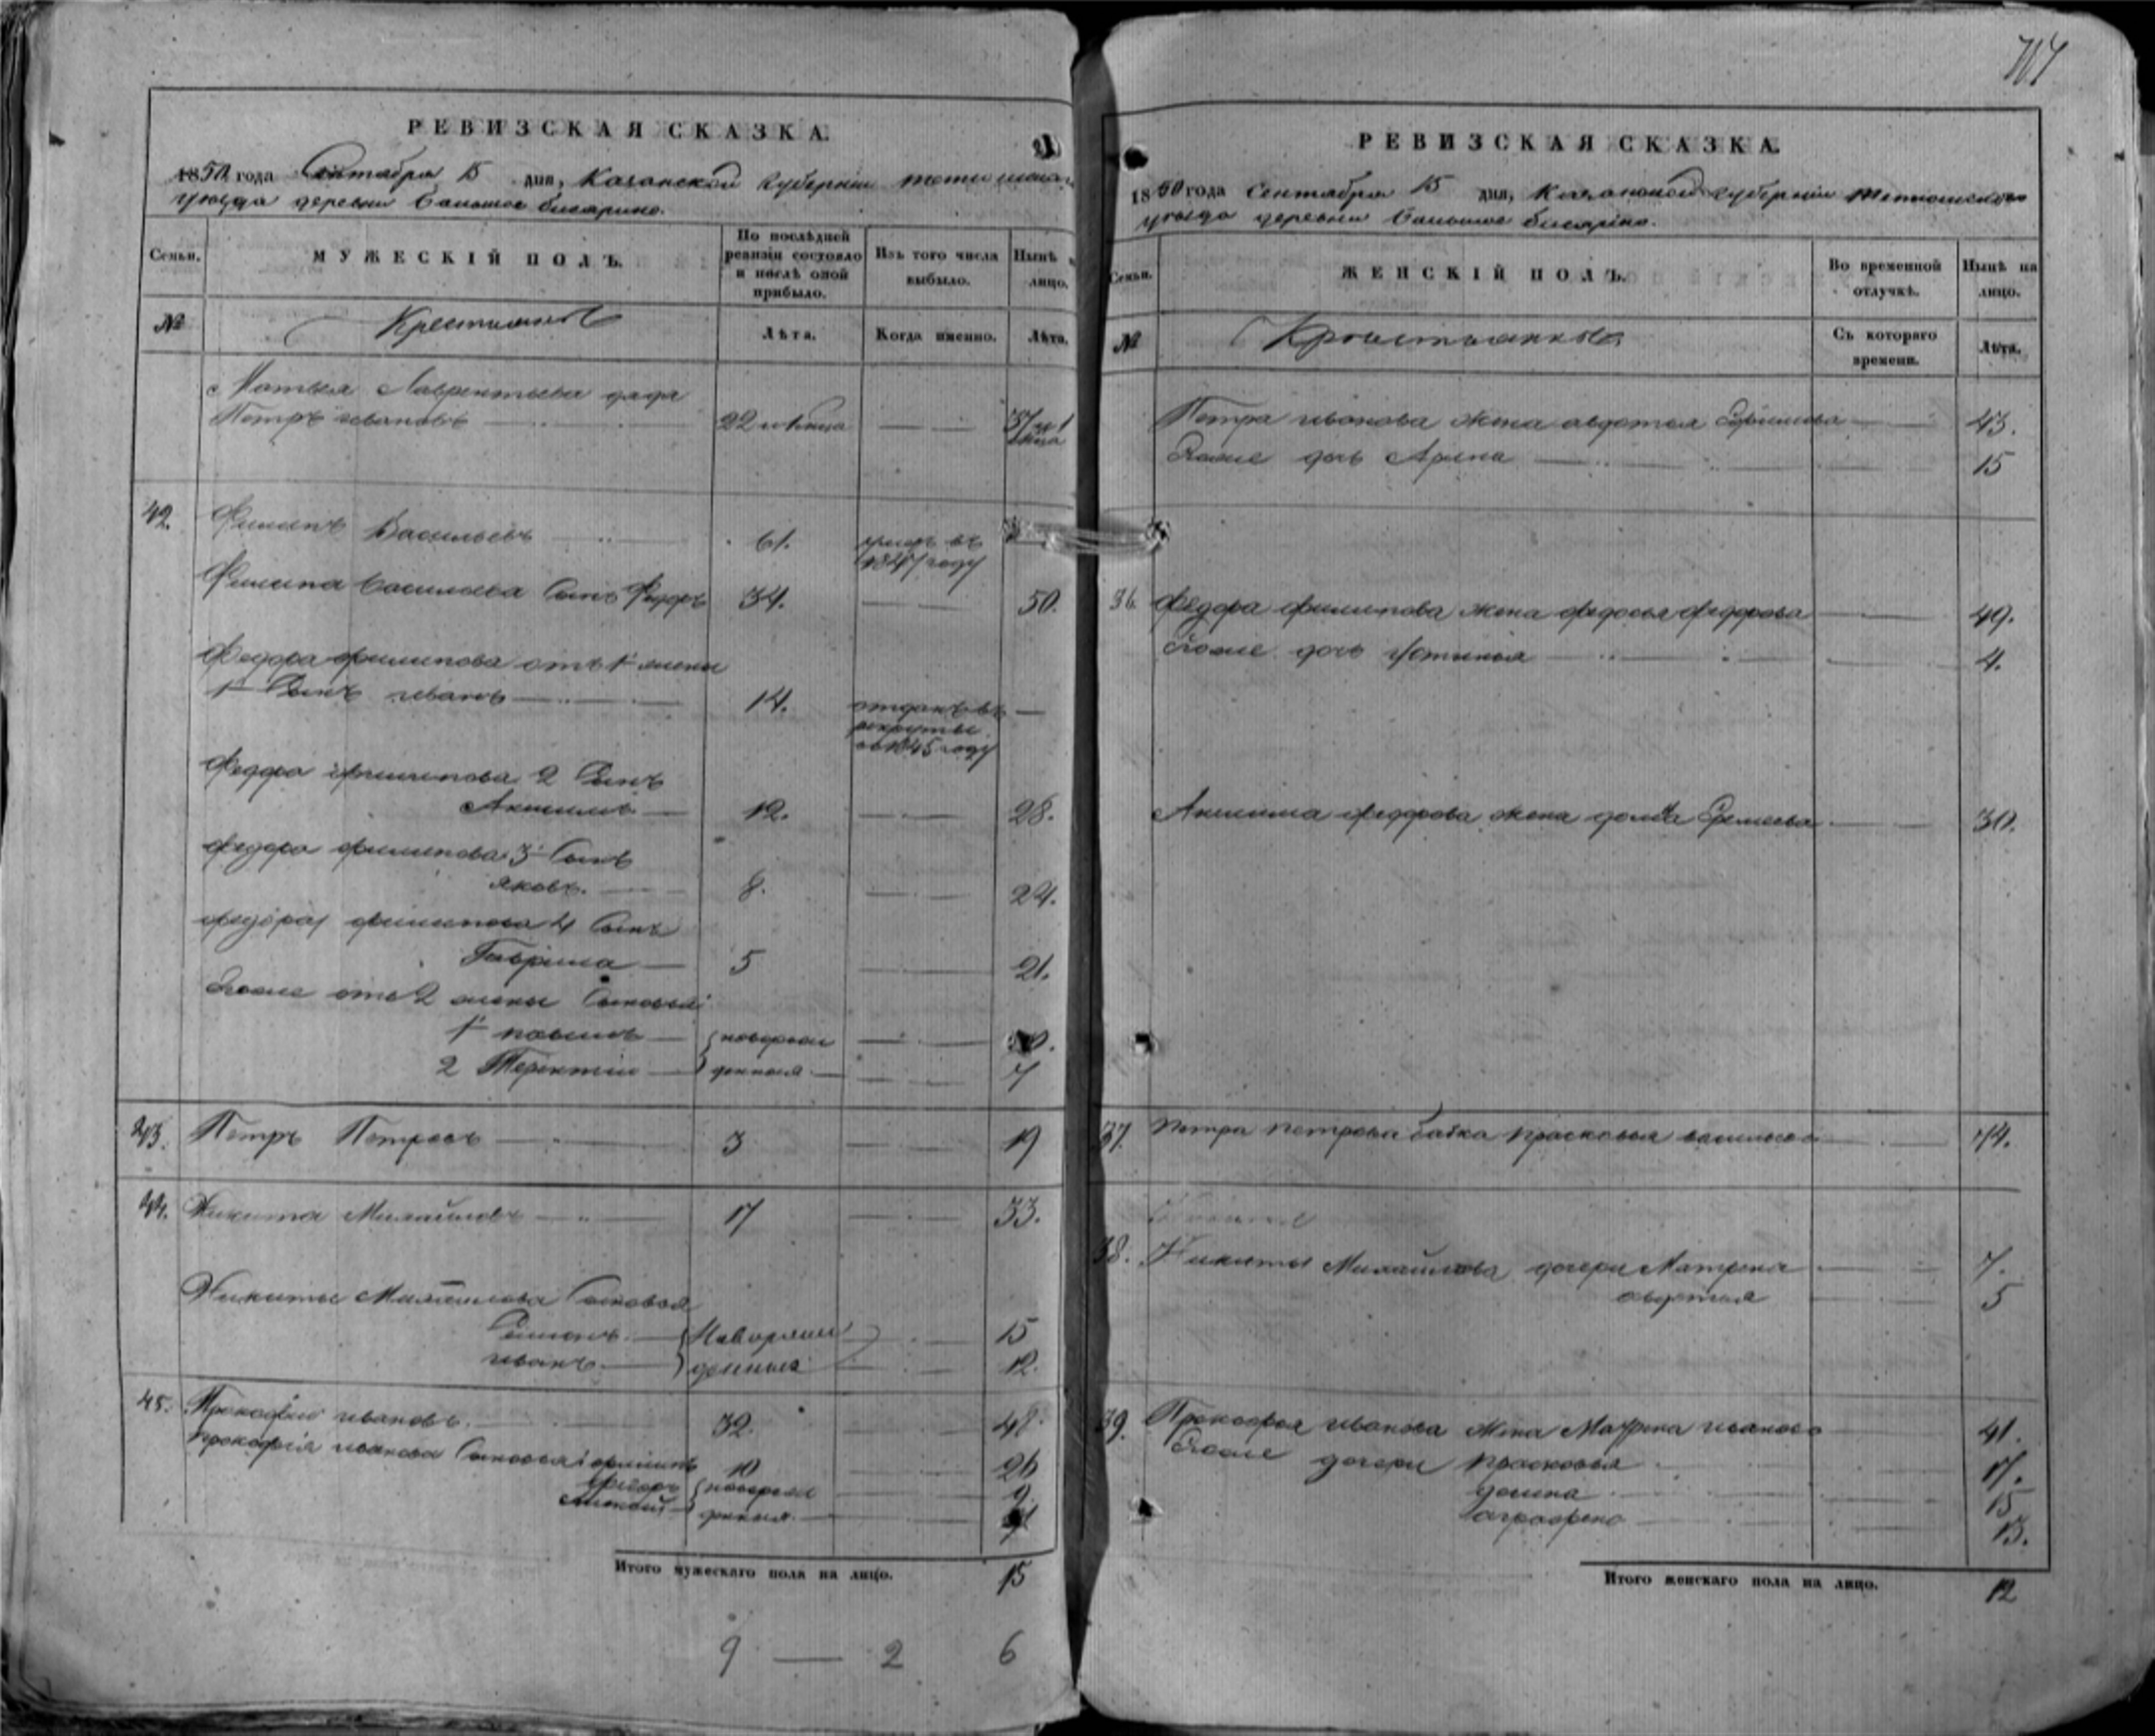 717
РЕВИЗСКАЯ СКАЗКА.
1850 года Сентября 15 дня, Казанской губернии тетюшскаго
уезда деревни большое бисярино.
Семьи.
МУЖЕСКІЙ ПОЛЪ.
По послѣдней ревизіи состояло и послѣ оной прибыло.
Изъ того числа выбыло.
Нынѣ лицо.
№
Крестьянъ
Лѣта.
Когда именно.
Лѣта.
Матвея Лаврентьева дядя
Петръ ивановъ 22
42. Филипъ Васильевъ 61. умеръ въ
году
Филипа васильева сынъ Федоръ 34. 50.
Федора филипова отъ 1й жены
1й сынъ иванъ 14. отданъ въ
рекруты
въ 1845 году
Федора филипова 2 сынъ
Акимъ 12. 28.
федора филипова 3й сынъ
яковъ. 8. 24.
федора филипова 4 сынъ
Гаврила 5 21.
Ево же отъ 2 жены сыновья
1й новорож
2 Терентий денныя 7
43. Петръ Петровъ 3 19
44. Никита Михайловъ 17 33.
Никиты Михайлова сыновья
Симонъ Новорож 15
иванъ денныя 12.
45. Прокофий ивановъ. 32. 48.
прокофія иванова сыновья 1 филипъ 10 26
новорож 9
Алексей денныя
Итого мужескаго пола на лицо. 15
9 — 2 6
РЕВИЗСКАЯ СКАЗКА.
1850 года Сентября 15 дня, Казанской губернии Тетюшскаго
уезда деревни большое бисярино.
Семьи.
ЖЕНСКІЙ ПОЛЪ.
Во временной отлучкѣ.
Нынѣ на лицо.
№
Крестьянъ
Съ котораго времени.
Лѣта.
Петра иванова жена авдотья Ефимова 43.
Ево же дочь Арина 15
36. Федора филипова жена федосья федорова 49.
Ево же дочь устинья 4.
Акима федорова жена домна Еремеева 30.
37. Петра петрова бабка прасковья васильева 74.
38. Никиты Михайлова дочери Матрена 7.
авдотья 5
39. Прокофья иванова жена Мавра иванова 41.
Ево же дочери прасковья 17.
15
аграфена 13.
Итого женскаго пола на лицо. 12